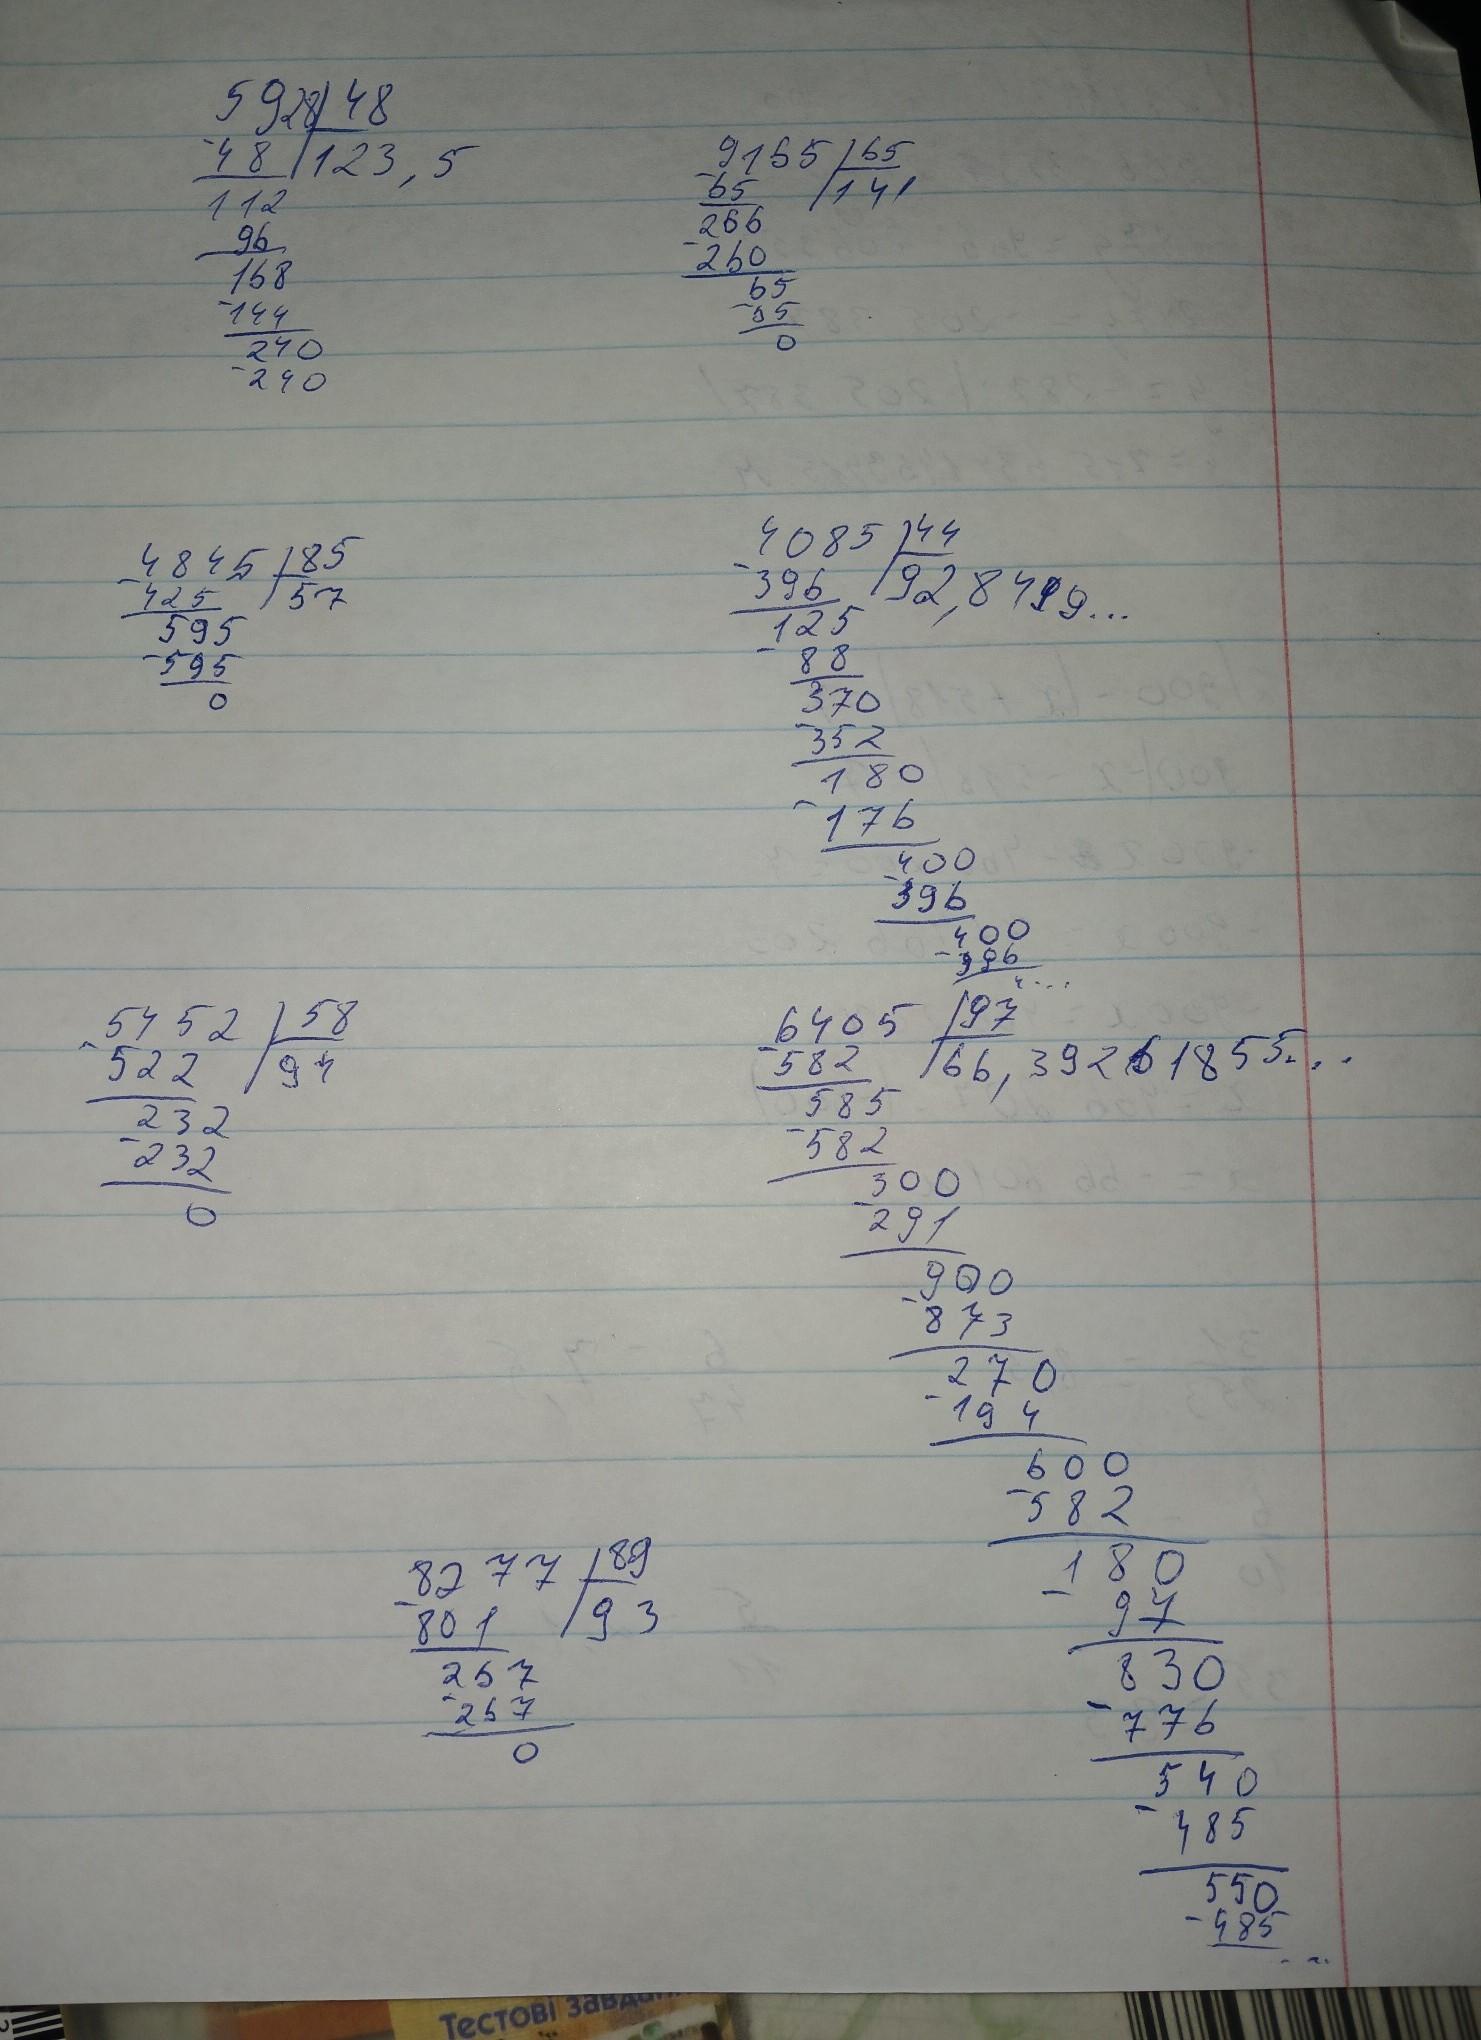 5928 48
-48 123,5
112
96
168
-144
240
-240
9165 65
-65 141
266
-260
65
-65
0
4845 85
-425 57
595
-595
0
4085 44
-396 92,8499...
125
-88
370
-352
180
-176
400
-396
400
-396
4...
5452 58
-522 94
232
-232
0
6405 97
-582 66,39261855...
585
-582
300
-291
900
-873
270
-194
600
-582
180
-97
830
-776
540
-485
550
-485
...
8277 89
-801 93
267
-267
0
Тестові